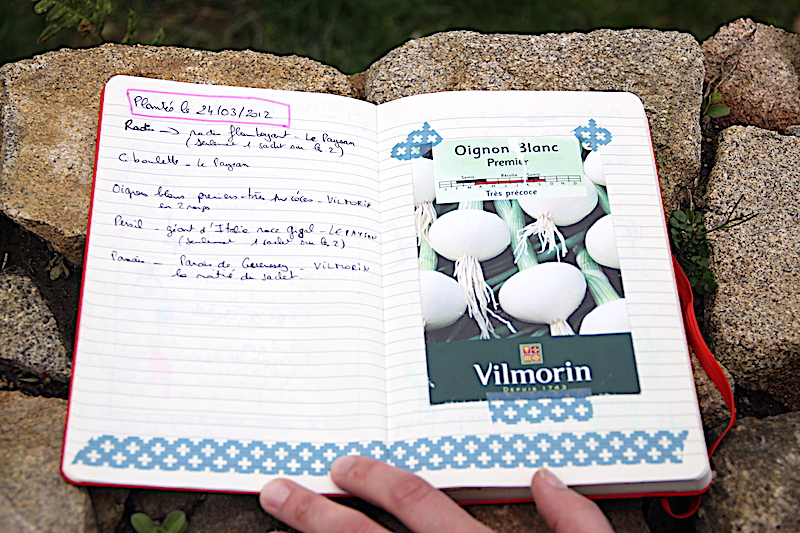 Plantés le 24/03/2012
Radis → radis flamboyant - Le Paysan
(seulement 1 sachet sur les 2)
Ciboulette - Le Paysan
Oignons blancs premiers - très précoces - VILMORIN
en 2 rangs
Persil - géant d'Italie race - LE PAYSAN
(seulement 1 sachet sur les 2)
Panais - Panais de Guernesey - VILMORIN
la moitié du sachet
Oignon Blanc
Premier
Semis Récolte Semis
Très précoce
Vilmorin
DEPUIS 1743